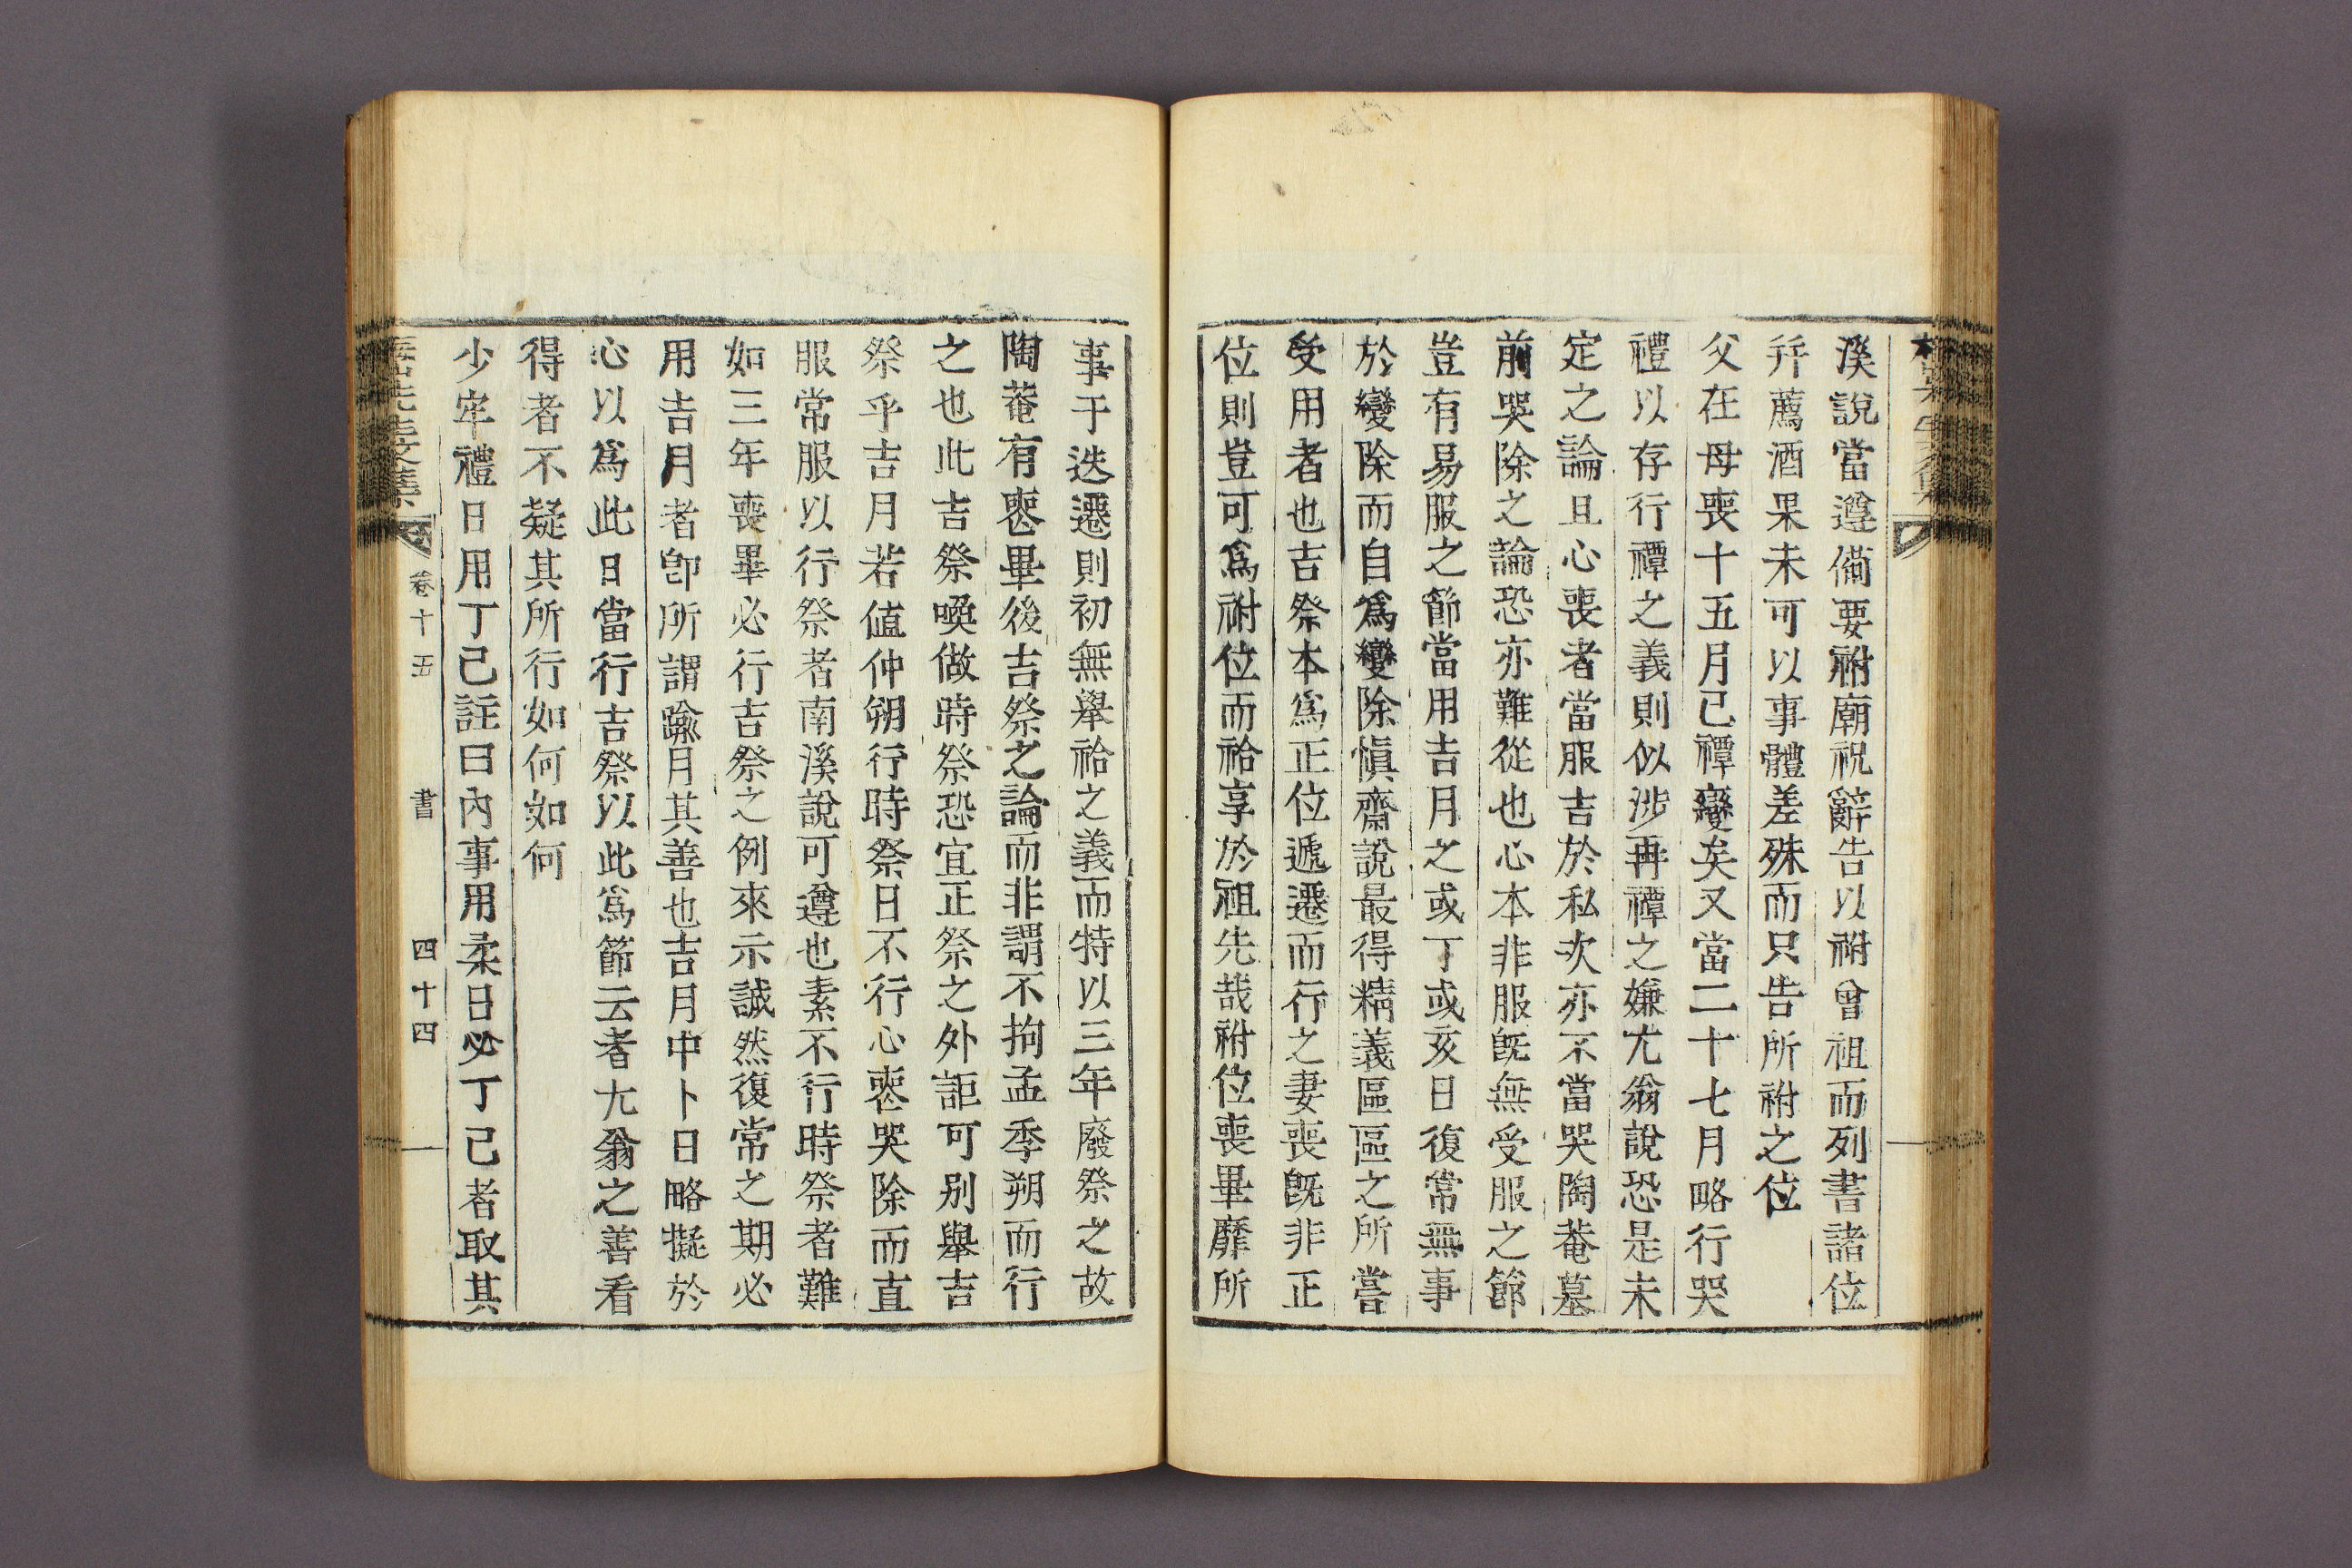 溪說當遵備要祔廟祝辭告以祔曾祖而列書諸位
幷薦酒果未可以事體差殊而只告所祔之位
父在母喪十五月已禫變矣又當二十七月略行哭
禮以存行禫之義則似涉再禫之嫌尤翁說恐是未
定之論且心喪者當服吉於私次亦不當哭陶菴墓
前哭除之論恐亦難從也心本非服旣無受服之節
豈有易服之節當用吉月之或丁或亥日復常無事
於變除而自爲變除愼齋說最得精義區區之所嘗
受用者也吉祭本爲正位遞遷而行之妻喪旣非正
位則豈可爲祔位而祫享於祖先哉祔位喪畢靡所
事于迭遷則初無擧祫之義而特以三年廢祭之故
陶菴有喪畢後吉祭之論而非謂不拘孟季朔而行
之也此吉祭喚做時祭恐宜正祭之外詎可別擧吉
祭乎吉月若値仲朔行時祭日不行心喪哭除而直
服常服以行祭者南溪說可遵也素不行時祭者難
如三年喪畢必行吉祭之例來示誠然復常之期必
用吉月者卽所謂踰月其善也吉月中卜日略擬於
心以爲此日當行吉祭以此爲節云者尤翁之善看
得者不疑其所行如何如何
少牢禮日用丁己註曰內事用柔日必丁己者取其
卷十五
書
四十四